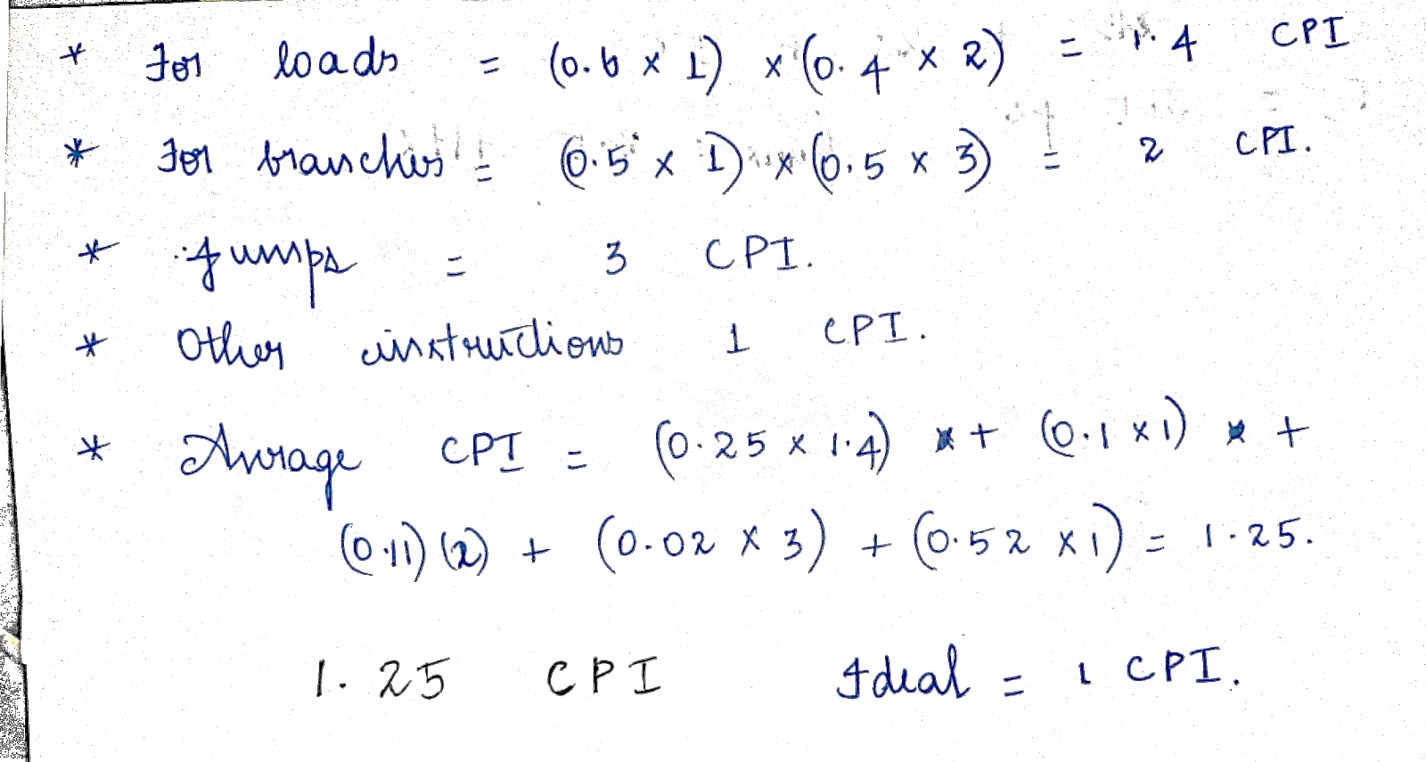 * For loads = (0.6 x 1) x (0.4 x 2) = 1.4 CPI
* For branches = (0.5 x 1) x (0.5 x 3) = 2 CPI.
* Jumps = 3 CPI.
* Other instructions 1 CPI.
* Average CPI = (0.25 x 1.4) + (0.1 x 1) +
(0.11) (2) + (0.02 x 3) + (0.52 x 1) = 1.25.
1.25 CPI Ideal = 1 CPI.